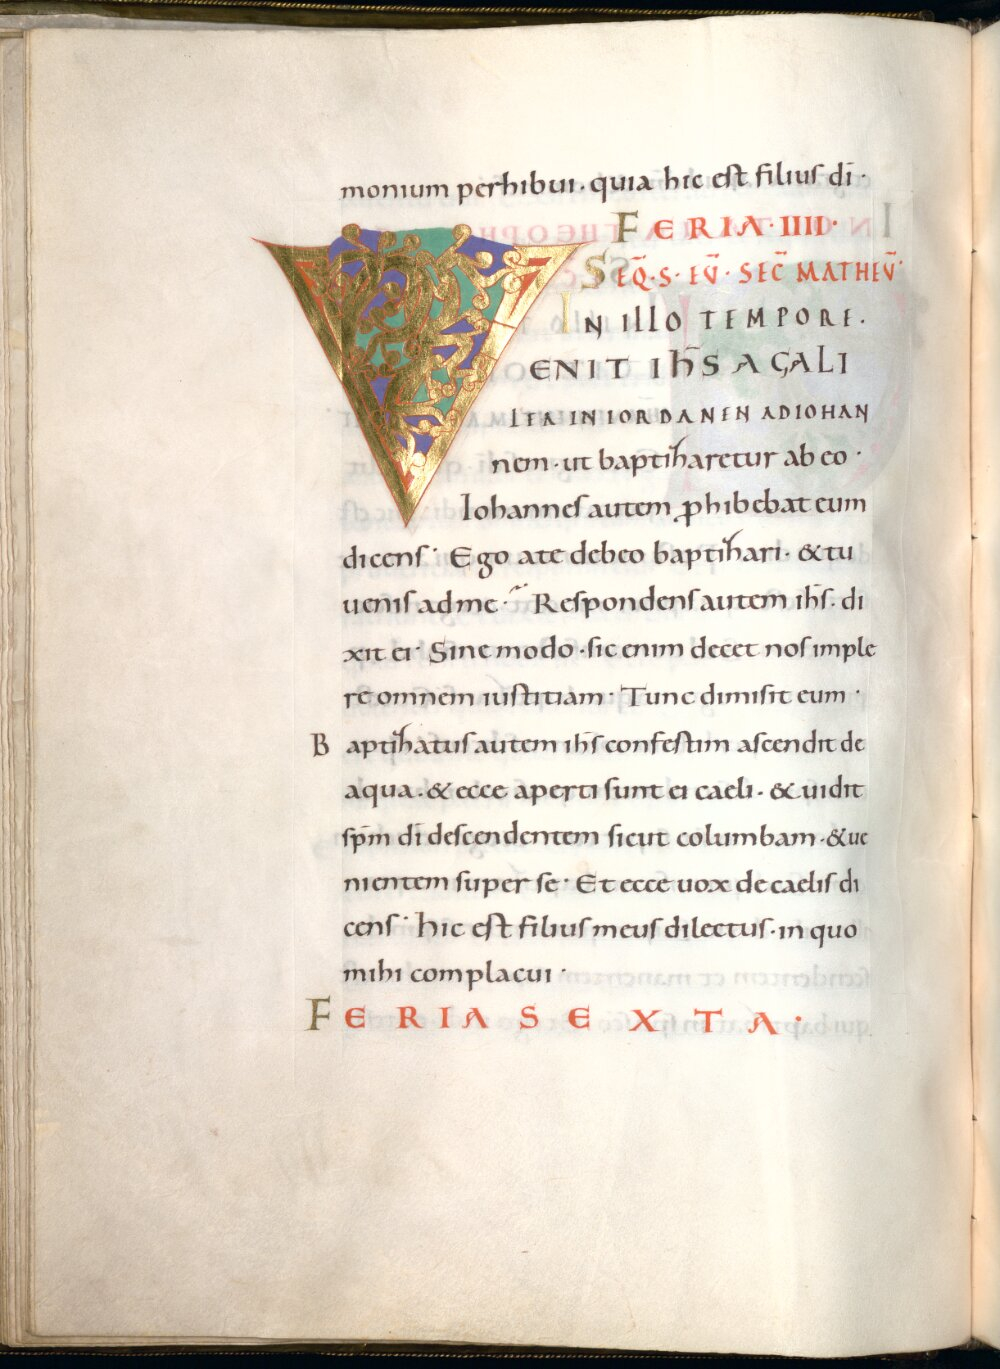 monium perhibui · quia hic est filius dī ·
FERIA · IIII ·
SEQ̄ · S · EV̄ · SEC̄ MATHEV̄ ·
IN ILLO TEMPORE .
VENIT IH̄S A GALI
LEA IN IORDANEN AD IOHAN
nem · ut baptiharetur ab eo ·
Iohannes autem ꝓhibebat eum
dicens · Ego a te debeo baptihari · & tu
uenis ad me · Respondens autem ih̄s · di
xit ei · Sine modo · sic enim decet nos imple
re omnem iustitiam · Tunc dimisit eum ·
Baptihatus autem ih̄s confestim ascendit de
aqua · & ecce aperti sunt ei caeli · & uidit
spm̄ dī descendentem sicut columbam · & ue
nientem super se · Et ecce uox de caelis di
cens · hic est filius meus dilectus · in quo
mihi complacui ·
FERIA SEXTA ·